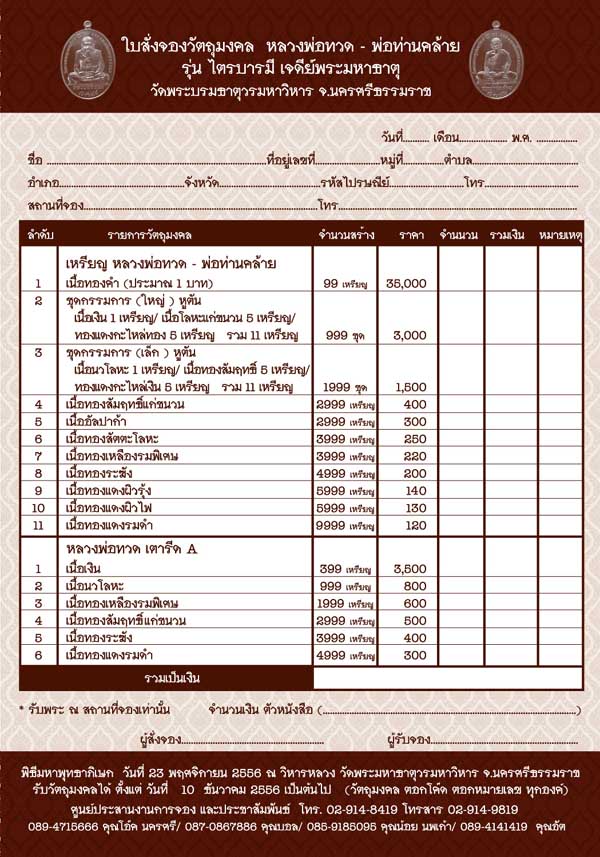 ใบสั่งจองวัตถุมงคล หลวงพ่อทวด - พ่อท่านคล้าย
รุ่น ไตรบารมี เจดีย์พระมหาธาตุ
วัดพระบรมธาตุวรมหาวิหาร จ.นครศรีธรรมราช
วันที่........... เดือน.................... พ.ศ. .................
ชื่อ ..........................................................ที่อยู่เลขที่.................หมู่ที่...........ตำบล...........................
อำเภอ.................................จังหวัด...........................รหัสไปรษณีย์....................โทร.........................
สถานที่จอง..............................................................โทร................................................................
ลำดับ รายการวัตถุมงคล จำนวนสร้าง ราคา จำนวน รวมเงิน หมายเหตุ
เหรียญ หลวงพ่อทวด - พ่อท่านคล้าย
1 เนื้อทองคำ (ประมาณ 1 บาท) 99 เหรียญ 35,000
2 ชุดกรรมการ (ใหญ่ ) หูตัน
เนื้อเงิน 1 เหรียญ/ เนื้อโลหะแก่ชนวน 5 เหรียญ/
ทองแดงกะไหล่ทอง 5 เหรียญ รวม 11 เหรียญ 999 ชุด 3,000
3 ชุดกรรมการ (เล็ก ) หูตัน
เนื้อนวโลหะ 1 เหรียญ/ เนื้อทองสัมฤทธิ์ 5 เหรียญ/
ทองแดงกะไหล่เงิน 5 เหรียญ รวม 11 เหรียญ 1999 ชุด 1,500
4 เนื้อทองสัมฤทธิ์แก่ชนวน 2999 เหรียญ 400
5 เนื้ออัลปาก้า 2999 เหรียญ 300
6 เนื้อทองสัตตะโลหะ 3999 เหรียญ 250
7 เนื้อทองเหลืองรมพิเศษ 3999 เหรียญ 220
8 เนื้อทองระฆัง 4999 เหรียญ 200
9 เนื้อทองแดงผิวรุ้ง 5999 เหรียญ 140
10 เนื้อทองแดงผิวไฟ 5999 เหรียญ 130
11 เนื้อทองแดงรมดำ 9999 เหรียญ 120
หลวงพ่อทวด เตารีด A
1 เนื้อเงิน 399 เหรียญ 3,500
2 เนื้อนวโลหะ 999 เหรียญ 800
3 เนื้อทองเหลืองรมพิเศษ 1999 เหรียญ 600
4 เนื้อทองสัมฤทธิ์แก่ชนวน 2999 เหรียญ 500
5 เนื้อทองระฆัง 3999 เหรียญ 400
6 เนื้อทองแดงรมดำ 4999 เหรียญ 300
รวมเป็นเงิน
* รับพระ ณ สถานที่จองเท่านั้น จำนวนเงิน ตัวหนังสือ (..................................................................)
ผู้สั่งจอง...................................... ผู้รับจอง......................................
พิธีมหาพุทธาภิเษก วันที่ 23 พฤศจิกายน 2556 ณ วิหารหลวง วัดพระมหาธาตุวรมหาวิหาร จ.นครศรีธรรมราช
รับวัตถุมงคลได้ ตั้งแต่ วันที่ 10 ธันวาคม 2556 เป็นต้นไป (วัตถุมงคล ตอกโค้ด ตอกหมายเลข ทุกองค์)
ศูนย์ประสานงานการจอง และประชาสัมพันธ์ โทร. 02-914-8419 โทรสาร 02-914-9819
089-4715666 คุณโอ๋ค นครศรี/ 087-0867886 คุณบอล/ 085-9185095 คุณน้อย นพเก้า/ 089-4141419 คุณอ๊ต